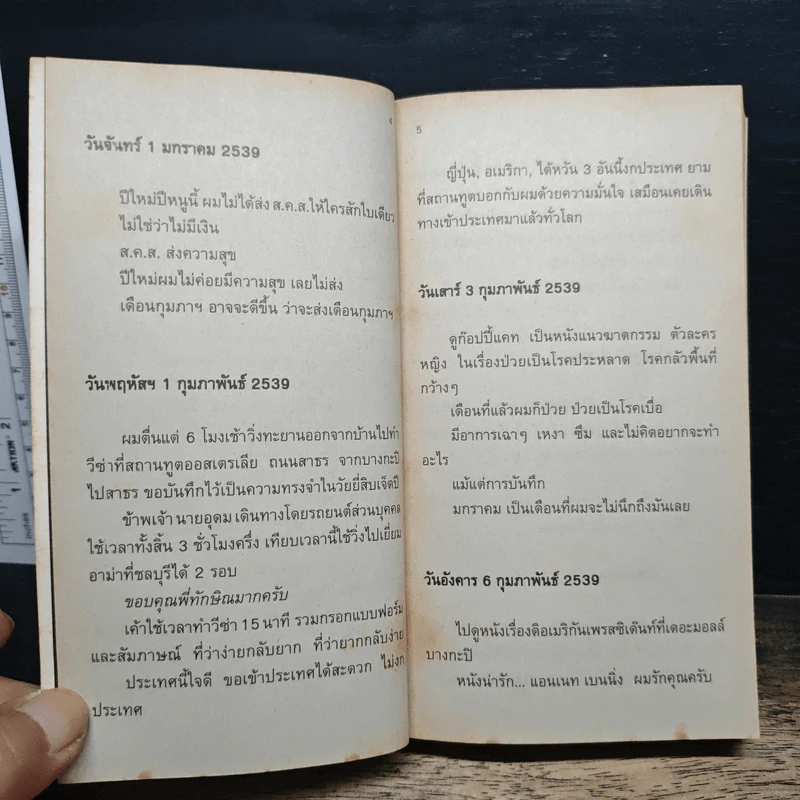 4
วันจันทร์ 1 มกราคม 2539
ปีใหม่ปีหนูนี้ ผมไม่ได้ส่ง ส.ค.ส.ให้ใครสักใบเดียว
ไม่ใช่ว่าไม่มีเงิน
ส.ค.ส. ส่งความสุข
ปีใหม่ผมไม่ค่อยมีความสุข เลยไม่ส่ง
เดือนกุมภาฯ อาจจะดีขึ้น ว่าจะส่งเดือนกุมภาฯ
วันพฤหัสฯ 1 กุมภาพันธ์ 2539
ผมตื่นแต่ 6 โมงเช้าวิ่งทะยานออกจากบ้านไปทำ
วีซ่าที่สถานทูตออสเตรเลีย ถนนสาธร จากบางกะปิ
ไปสาธร ขอบันทึกไว้เป็นความทรงจำในวัยยี่สิบเจ็ดปี
ข้าพเจ้า นายอุดม เดินทางโดยรถยนต์ส่วนบุคคล
ใช้เวลาทั้งสิ้น 3 ชั่วโมงครึ่ง เทียบเวลานี้ใช้วิ่งไปเยี่ยม
อาม่าที่ชลบุรีได้ 2 รอบ
ขอบคุณพี่ทักษิณมากครับ
เค้าใช้เวลาทำวีซ่า 15 นาที รวมกรอกแบบฟอร์ม
และสัมภาษณ์ ที่ว่าง่ายกลับยาก ที่ว่ายากกลับง่าย
ประเทศนี้ใจดี ขอเข้าประเทศได้สะดวก ไม่งก
ประเทศ
5
ญี่ปุ่น, อเมริกา, ไต้หวัน 3 อันนี้งกประเทศ ยาม
ที่สถานทูตบอกกับผมด้วยความมั่นใจ เสมือนเคยเดิน
ทางเข้าประเทศมาแล้วทั่วโลก
วันเสาร์ 3 กุมภาพันธ์ 2539
ดูก๊อปปี้แคท เป็นหนังแนวฆาตกรรม ตัวละคร
หญิง ในเรื่องป่วยเป็นโรคประหลาด โรคกลัวพื้นที่
กว้างๆ
เดือนที่แล้วผมก็ป่วย ป่วยเป็นโรคเบื่อ
มีอาการเฉาๆ เหงา ซึม และไม่คิดอยากจะทำ
อะไร
แม้แต่การบันทึก
มกราคม เป็นเดือนที่ผมจะไม่นึกถึงมันเลย
วันอังคาร 6 กุมภาพันธ์ 2539
ไปดูหนังเรื่องดิอเมริกันเพรสซิเด้นท์ที่เดอะมอลล์
บางกะปิ
หนังน่ารัก... แอนเนท เบนนิ่ง ผมรักคุณครับ